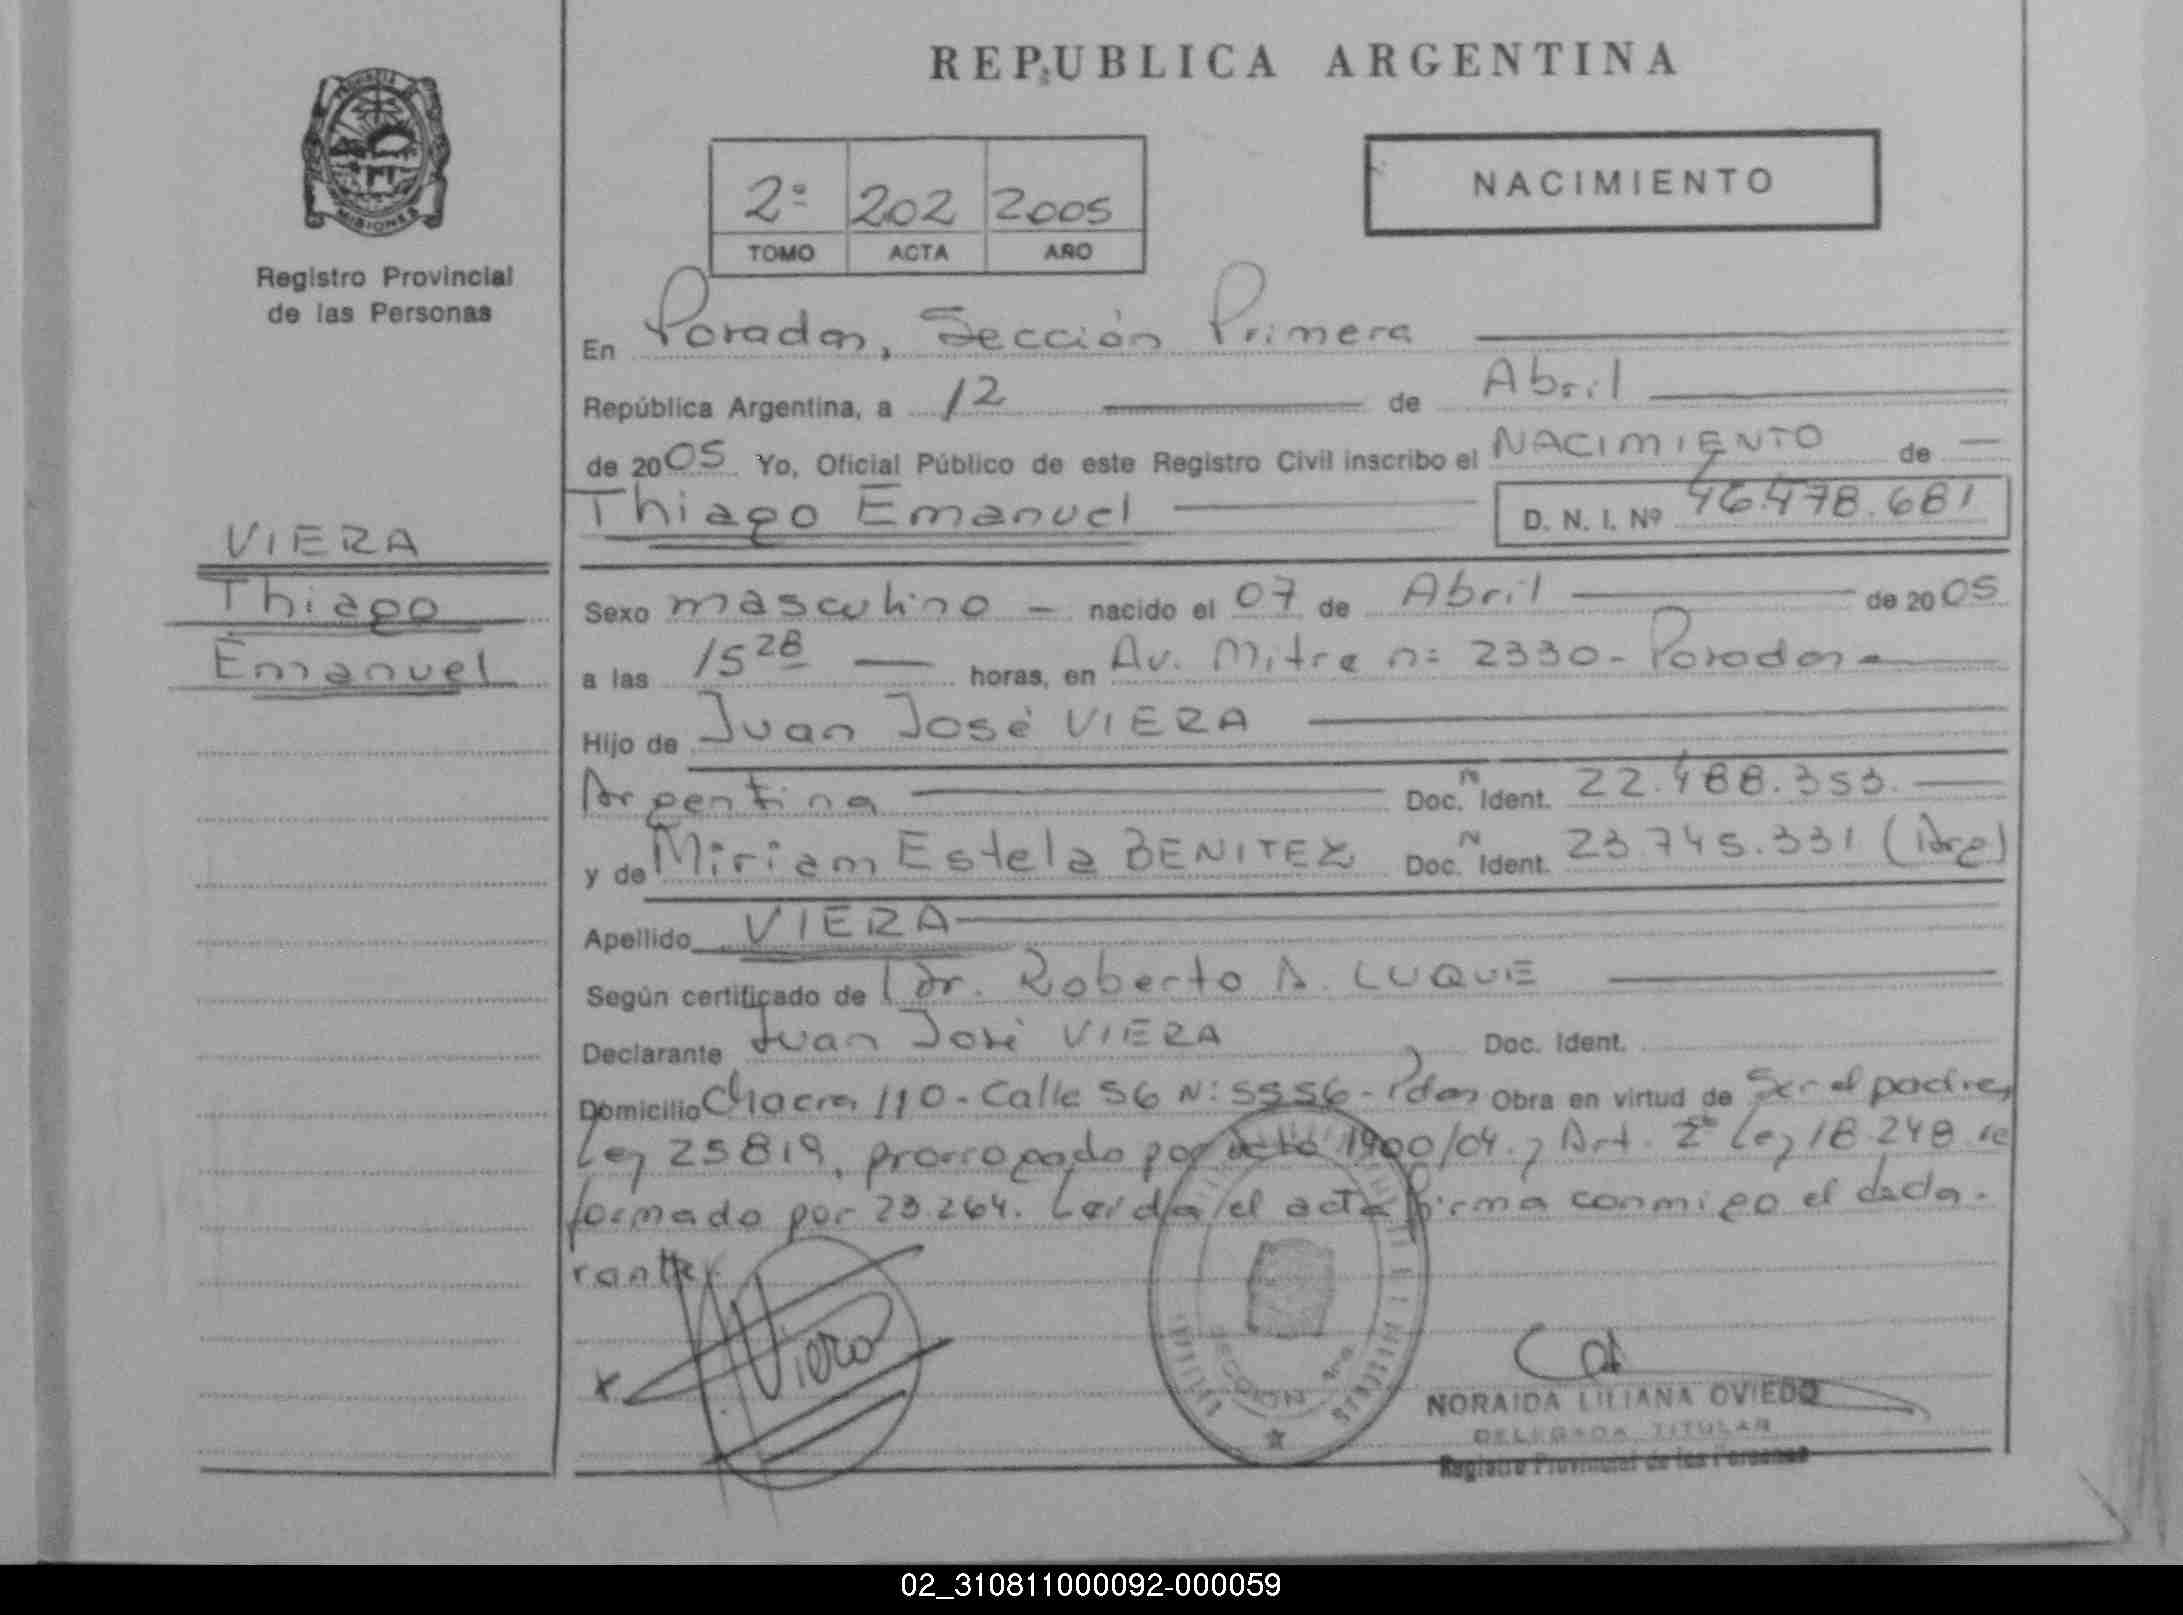 REPUBLICA ARGENTINA
MISIONES
Registro Provincial
de las Personas
2º 202 2005
TOMO ACTA AÑO
NACIMIENTO
En Posadas, Sección Primera
República Argentina, a 12 de Abril
de 2005 Yo, Oficial Público de este Registro Civil inscribo el NACIMIENTO de
Thiago Emanuel D. N. I. Nº 46.478.681
VIERA
Thiago
Emanuel
Sexo masculino nacido el 07 de Abril de 2005
a las 15 28 horas, en Av. Mitre nº 2330 - Posadas
Hijo de Juan José VIERA
Argentina Doc. N Ident. 22.488.353.
y de Miriam Estela BENITEZ Doc. N Ident. 23.745.331 (Arg)
Apellido VIERA
Según certificado de Dr. Roberto A. LUQUE
Declarante Juan José VIERA Doc. Ident.
Domicilio Chacra 110 - Calle 56 Nº 5556 - Pdas Obra en virtud de Ser el padre,
Ley 25819, prorrogado por 1900/04. y Art. 2º Ley 18.248 re
formado por 23.264. Leída el acta firma conmigo el decla-
rante.
Viera
SECCION 1ra
NORAIDA LILIANA OVIEDO
DELEGADA TITULAR
Registro Provincial de las Personas
02_310811000092-000059